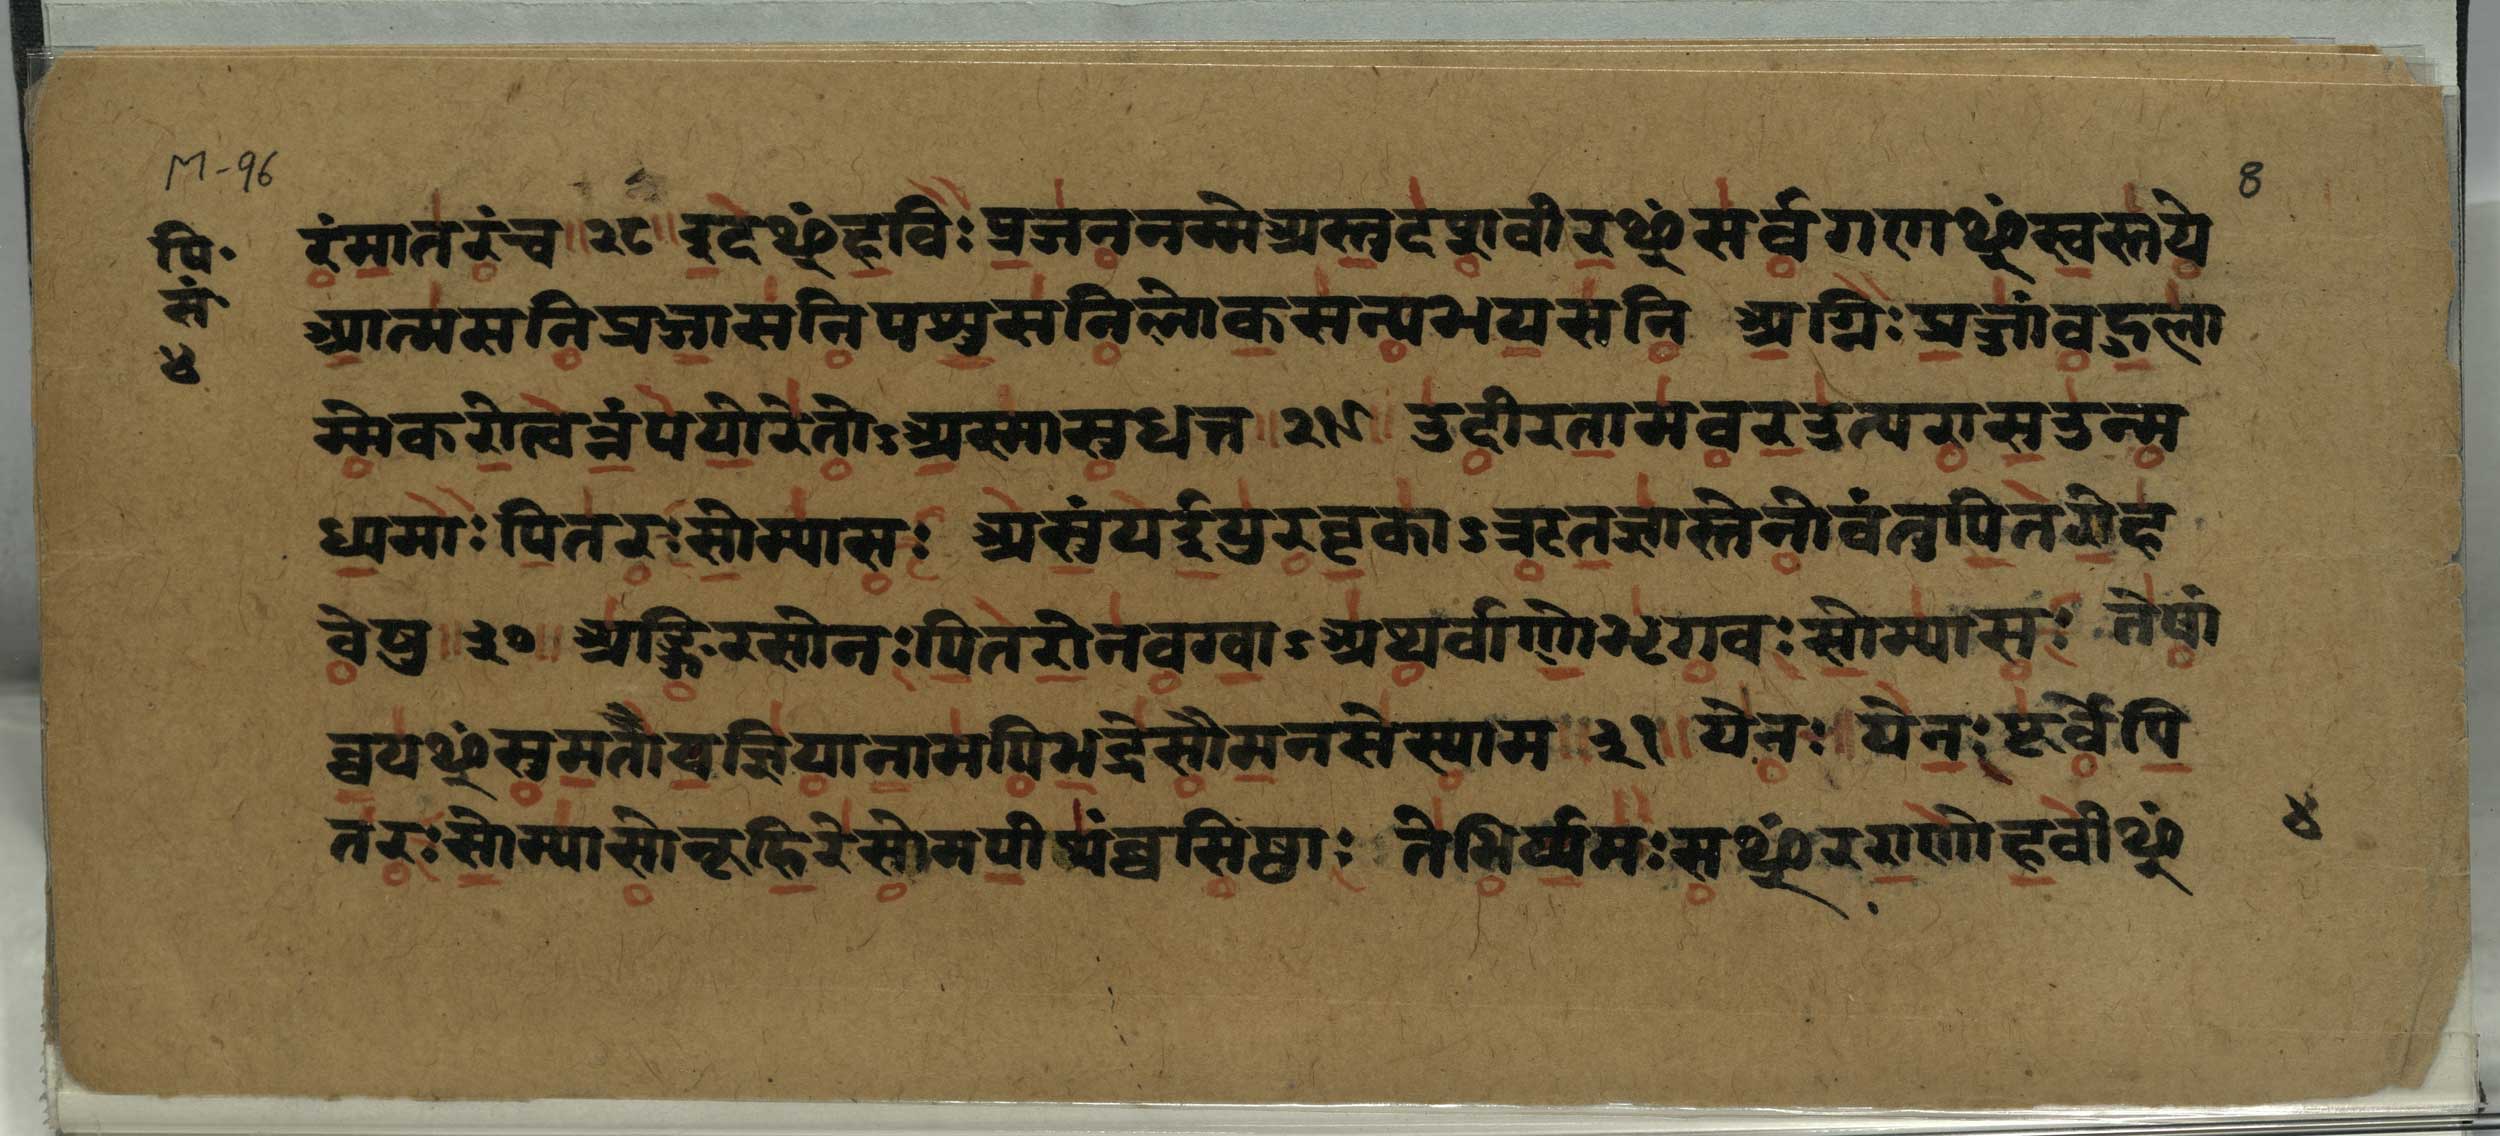 M-96
8
पि॰
सं॰
४
रंमातरंच ॥ २८ ॥ इदᳪहविः प्रजननम्मेअस्तुदशवीरᳪसर्वगणᳪस्वस्तये
आत्मसनिप्रजासनिपशुसनिलोकसन्यभयसनि अग्निः प्रजांबहुला
म्मेकरोत्वन्नंपयोरेतोऽअस्मासुधत्त ॥ २९ ॥ उदीरतामवरउत्परासउन्म
ध्यमाः पितरः सोम्यासः असुंयईयुरवृकाऽऋतज्ञास्तेनोवंतुपितरोह
वेषु ॥ ३० ॥ अङ्गिरसोनः पितरोनवग्वाऽअथर्वाणोभृगवः सोम्यासः तेषां
व्वयᳪसुमतौयज्ञियानामपिभद्रेसौमनसेस्याम ॥ ३१ ॥ येनः ॥ येनः पूर्वेपि
तरः सोम्यासोनूहिरेसोमपीथंव्वसिष्ठाः तेभिर्य्यमः सᳪरराणोहवीᳪ
४